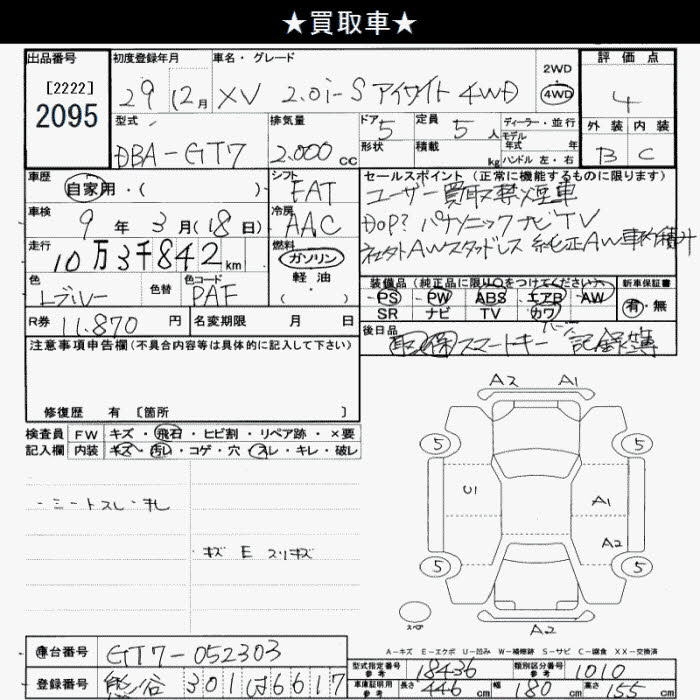 ★買取車★
出品番号 [2222] 2095
初度登録年月 29 12月
車名・グレード XV 2.0i-S アイサイト 4WD
2WD 4WD
評価点 4
外装 B 内装 C
型式 DBA-GT7
排気量 2.000 cc
ドア 5 定員 5人
形状 積載 kg
ディーラー・並行
モデル年式 年式
ハンドル 左・右
車歴 自家用・( )
シフト FAT
セールスポイント(正常に機能するものに限ります)
ユーザー買取禁煙車
DOP? パナソニックナビTV
社外AWスタッドレス 純正AW車内積み
車検 9年 3月(18日)
冷房 AAC
走行 10万3千842km
燃料 ガソリン 軽油 ( ・ )
色 Lブルー 色替 色コード PAF
装備品(純正品に限り○をつけてください)
PS PW ABS エアB AW
SR ナビ TV カワ
新車保証書 有・無
R券 11.870円 名変期限 月 日
後日品 取 保 スマートキー 記録簿
注意事項申告欄(不具合内容等は具体的に記入して下さい)
修復歴 有 [箇所 ]
検査員 FW キズ・飛石・ヒビ割・リペア跡・×要
記入欄 内装 キズ・汚レ・コゲ・穴・スレ・キレ・破レ
・シートスレ・キレ
キズ E スリキズ
A2 A1
5 5
U1 A1
A2
5 5
スペア
A2
A-キズ E-エクボ U-凹み W-補修跡 S-サビ C-腐食 XX-交換済
車台番号 GT7-052303
登録番号 熊谷 301 は 6617
型式指定番号 参考 18436 類別区分番号 参考 1010
車庫証明用 参考 長さ 446cm 幅 180cm 高さ 155cm